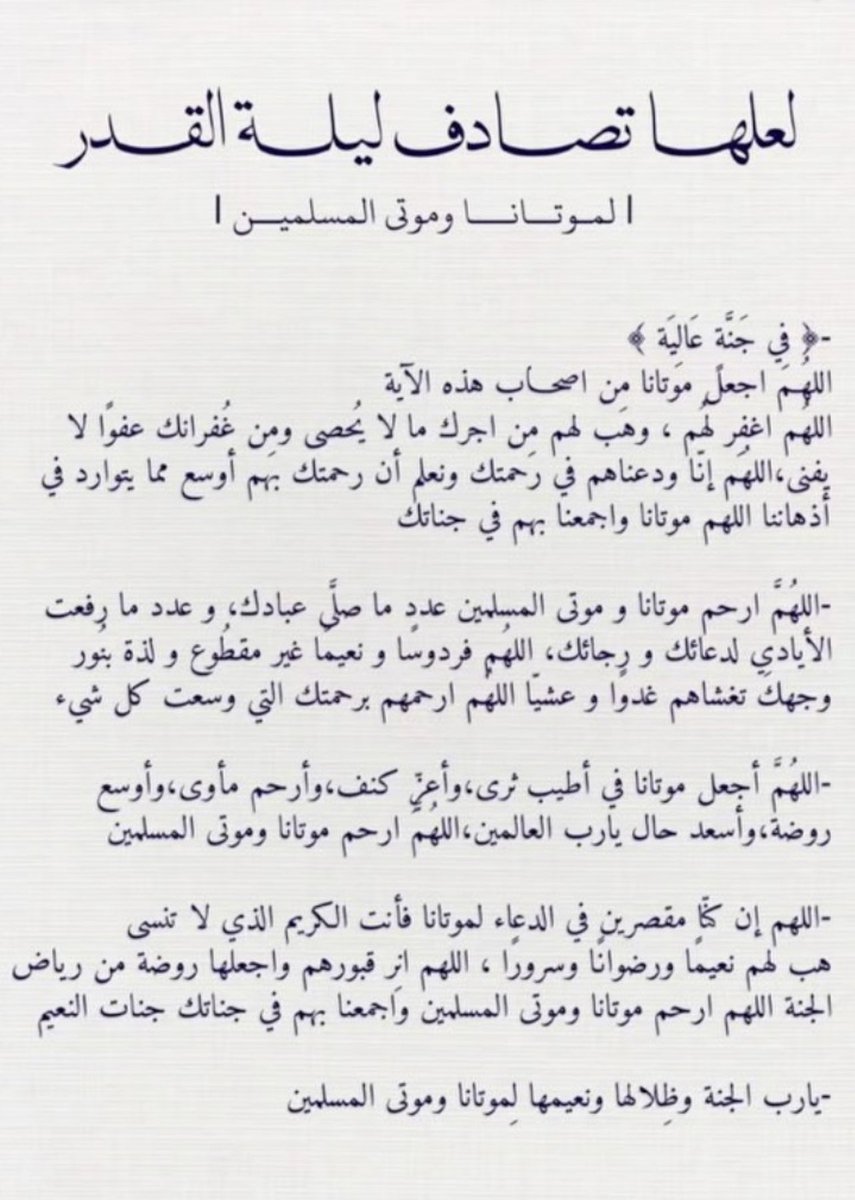 لعلها تصادف ليلة القدر
| لموتانا وموتى المسلمين |
-﴿ فِي جَنَّة عَالِيَة ﴾
اللهُمَ اجعل موَتانا مِن اصحاب هذه الآية
اللهُم اغفِر لهُم ، وهَب لهم مِن اجرك ما لا يُحصى ومِن غُفرانك عفوًا لا
يفنى،اللهُم إنّا ودعناهم في رَحمتك ونعلم أن رحمتك بهَم أوسع مما يتوارد في
أذهاننا اللهم موتانا واجمعنا بهم في جناتك
-اللهُمَّ ارحم موتانا و موتى المسلمين عدد ما صلَّى عبادك، و عدد ما رفعت
الأيادي لدعائك و رجائك، اللهُم فردوسًا و نعيمًا غير مقطُوع و لذة بنُور
وجهكَ تغشاهم غدوًا و عشيّا اللهُم ارحمهم برحمتك التي وسعت كل شيء
-اللهُمَّ أجعل موتانا في أطيب ثرى،وأعزّ كنف،وأرحم مأوى،وأوسع
روضة،وأسعد حال يارب العالمين،اللهُمَّ ارحم موتانا وموتى المسلمين
-اللهم إن كنّا مقصرين في الدعاء لموتانا فأنت الكريم الذي لا تنسى
هب لهم نعيمًا ورضوانًا وسرورًا ، اللهم انِر قبورهم واجعلها روضة من رياض
الجنة اللهم ارحم موتانا وموتى المسلمين وَاجمعنا بهم في جناتك جنات النعيم
-يارب الجنة وظِلالها ونعيمها لِموتانا وموتى المسلمين